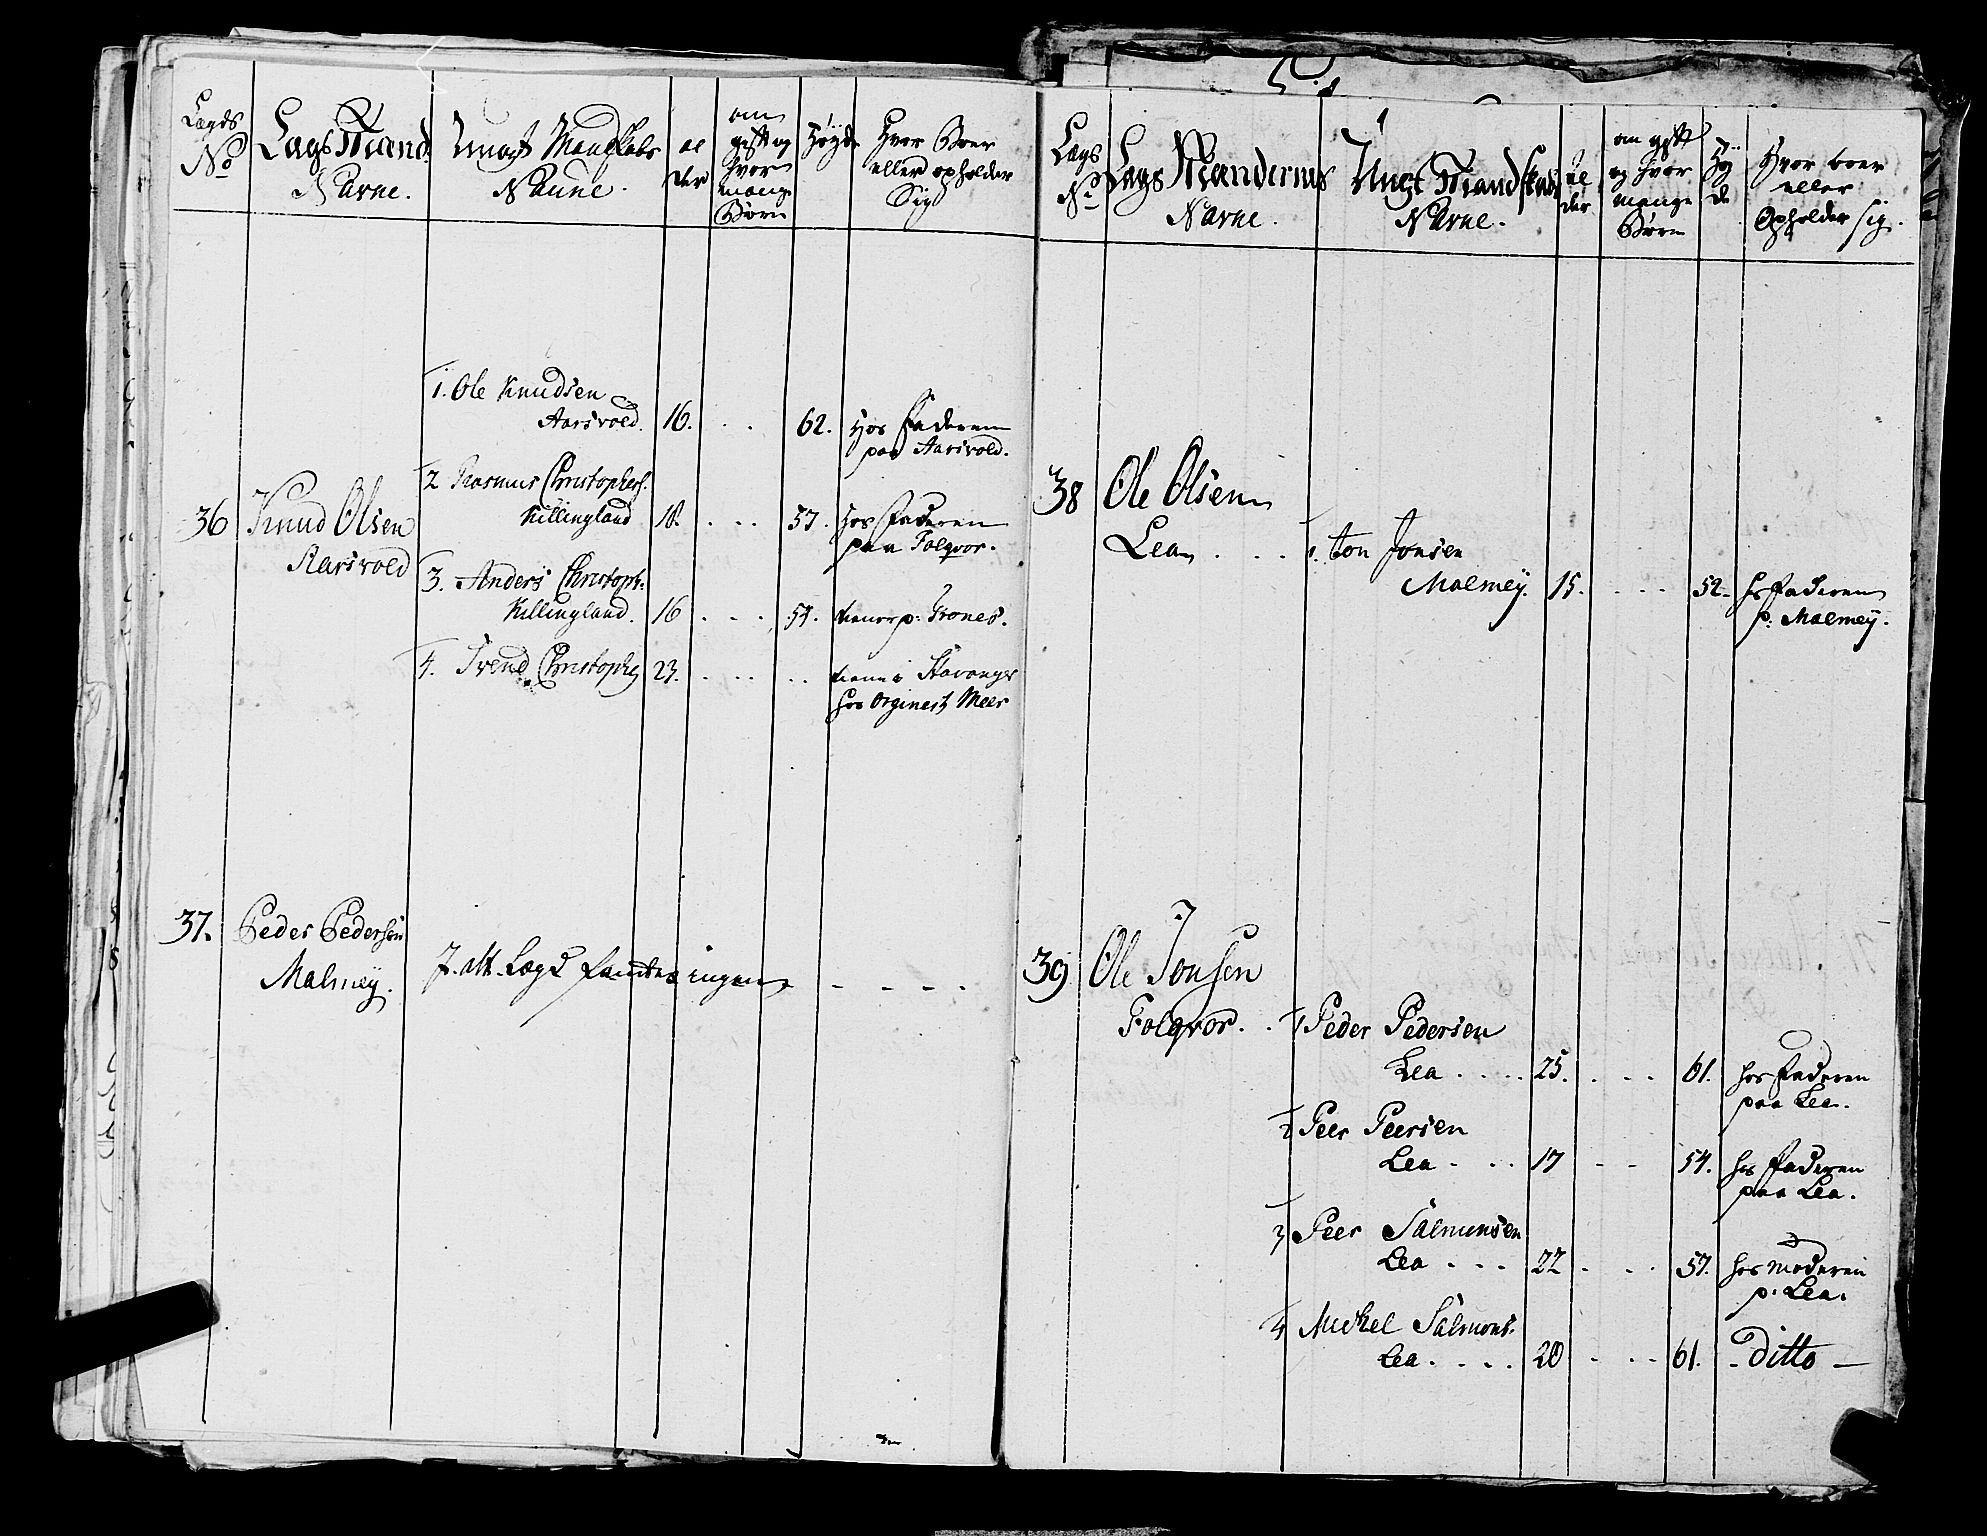 Lægds
No
Lags Mænd
Navne.
Ungt Mandskabs
Navne.
al
der
om
gift og
hvor
mange
Børn
Høyde
Hvor Boer
eller opholder
Sig
1. Ole Knudsen
Aarsvold. 16. . . 62. Hos Faderen
paa Aarsvold.
36 Knud Olsen
Aarsvold
2 Rasmus Christophers.
Killingland 18. . . . 57. Hos Faderen
paa Folqvor.
3. Anders Christoph:
Killingland. 16 . . . 54. tiener p:
4. Svend Christophs 23. . . . . . tiener i Stavanger
hos Meer
37. Peder Pedersen
Malmey.
J. dtt. Lægd fandtes ingen - - - -
Lægs
No
Lægs Mændernes
Navne.
Ungt Mandskabs
Navne.
Al
der
om gift
og hvor
mange
Børn
Høy
de
Hvor boer
eller
Opholder sig.
38 Ole Olsen
Lea . . . 1. Jon Jonsen
Malmey. 15. . . . 52. hos Faderen
p: Malmey.
39 Ole Jonsen
Folqvor. . 1 Peder Pedersen
Lea . . . . 25. . . . 61. hos Faderen
paa Lea.
2 Peer Peersen
Lea . . . 17 - - 54. hos Faderen
paa Lea.
3 Peer Salmunsen
Lea . . . 22 . . . 57. hos moderen
p. Lea.
4 Mickel Salmons.
Lea . . . . 20 . . . 61. - ditto -